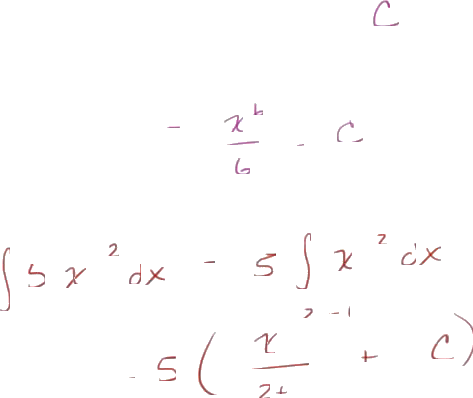 C
- x^6/6 - C
∫ 5 x^2 dx - 5 ∫ x^2 dx
- 5 ( x^2-1 / 2+ + C )